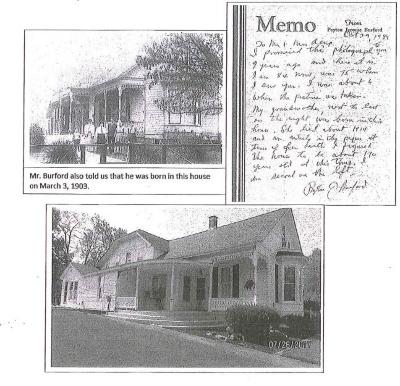 Memo
From
Peyton Burford
Oct 29, 19
To Mr & Mrs
I promised this photograph to you
9 years ago and here it is
I am 84 now, was 75 when
I saw you. I was about 6
when the picture was taken.
My grandmother next to last
on the right was born in this
house. She died about 1910
and an article in the paper at
time of her death I figured
the house to be about 170
years old at this time.
am second on the left
Peyton Burford
Mr. Burford also told us that he was born in this house
on March 3, 1903.